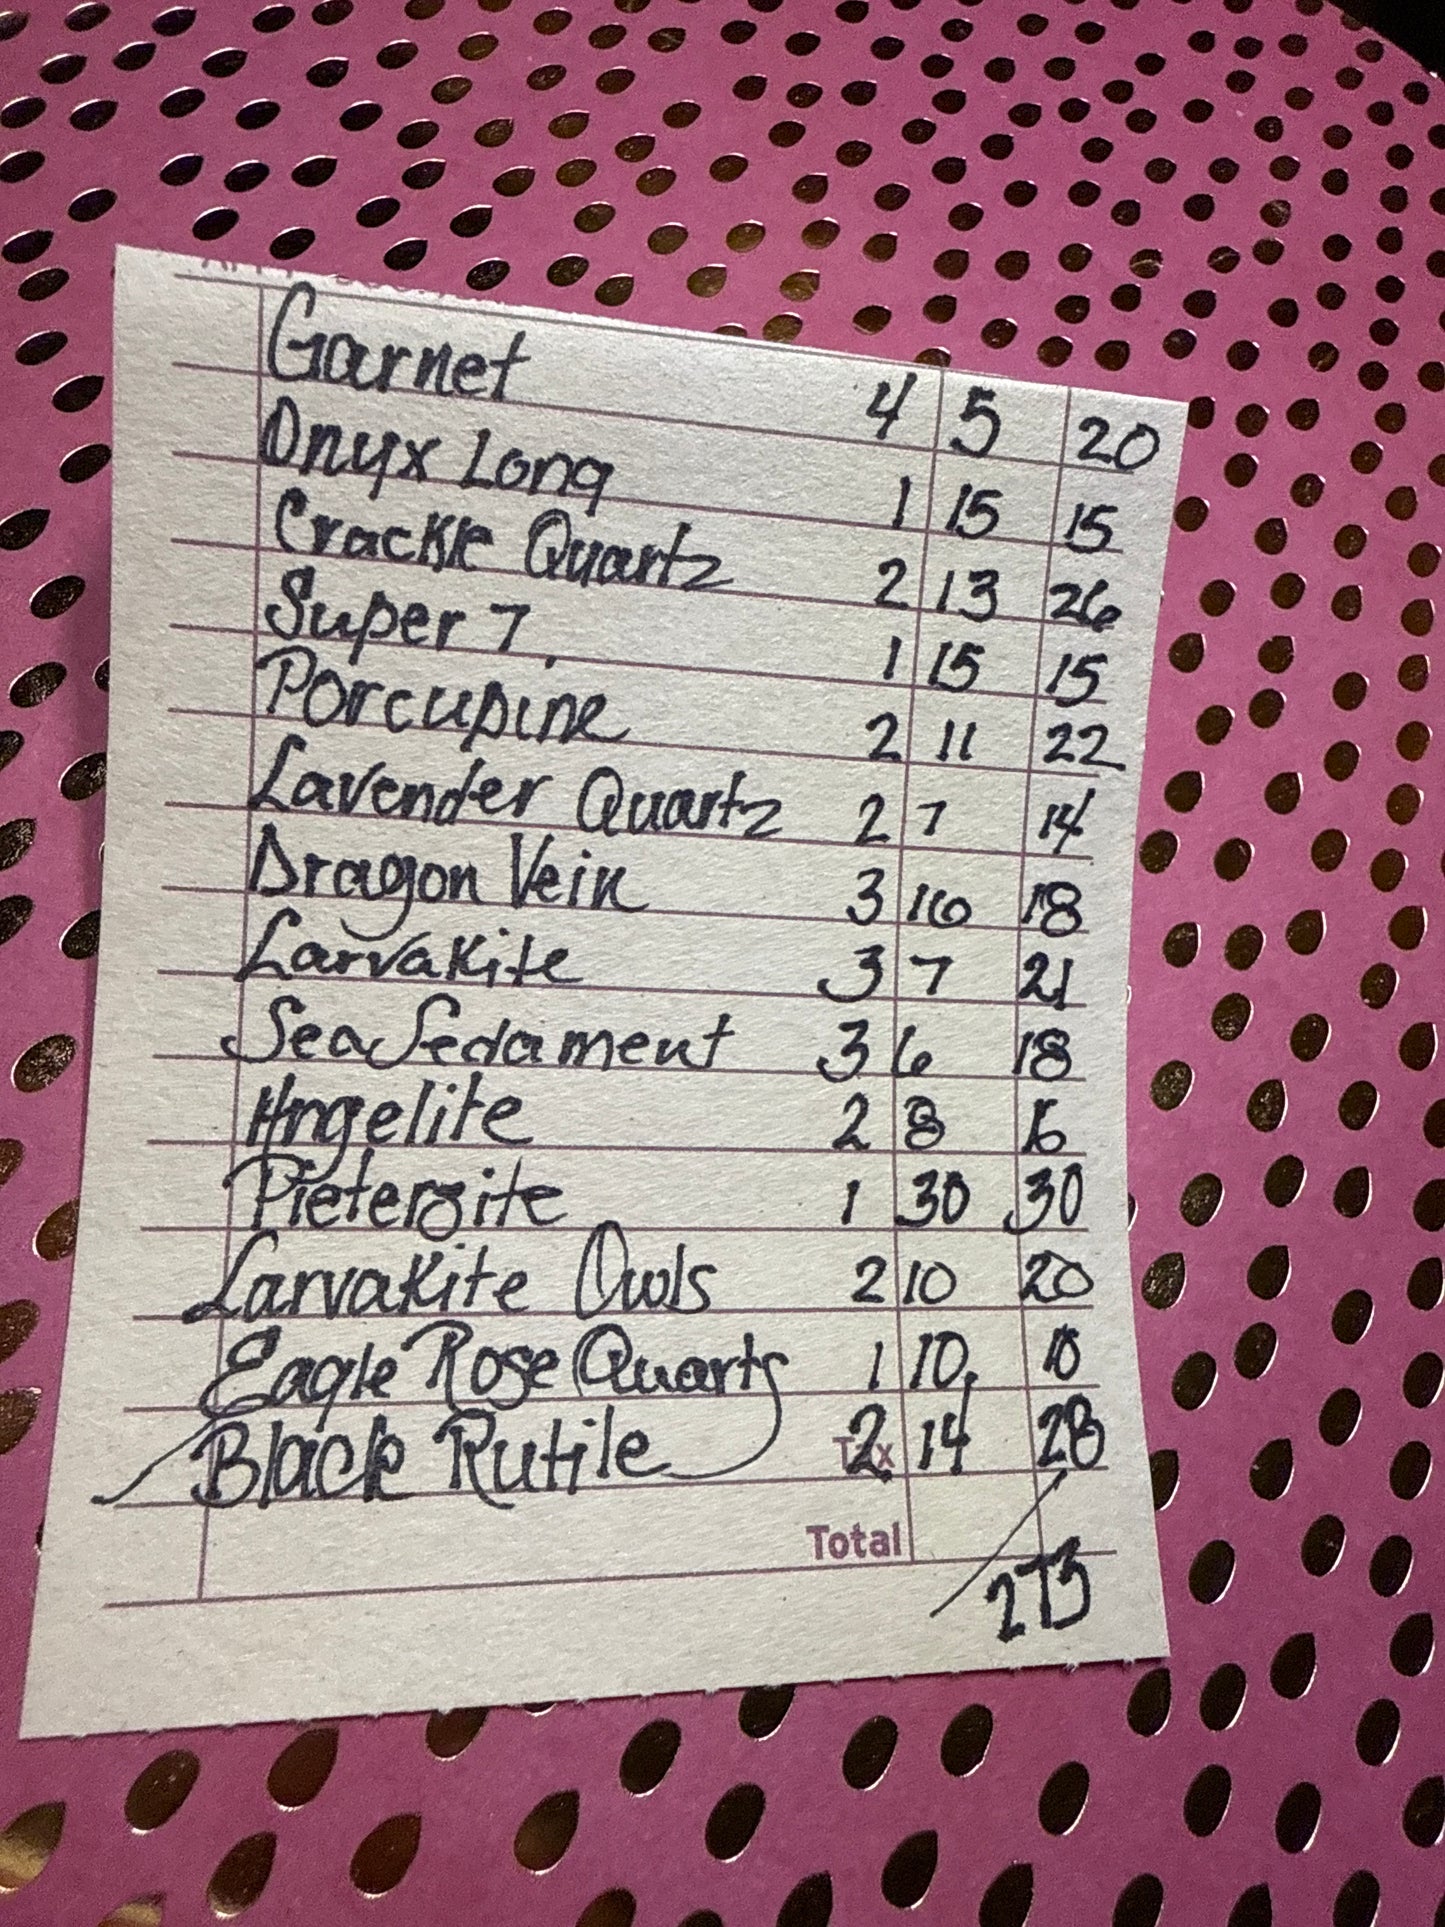 Garnet 4 5 20
Onyx Long 1 15 15
Crackle Quartz 2 13 26
Super 7 1 15 15
Porcupine 2 11 22
Lavender Quartz 2 7 14
Dragon Vein 3 16 18
Larvakite 3 7 21
Sea Sedament 3 6 18
Angelite 2 8 16
Pietersite 1 30 30
Larvakite Owls 2 10 20
Eagle Rose Quarts 1 10. 10
Black Rutile Tax 2 14 28
Total
273